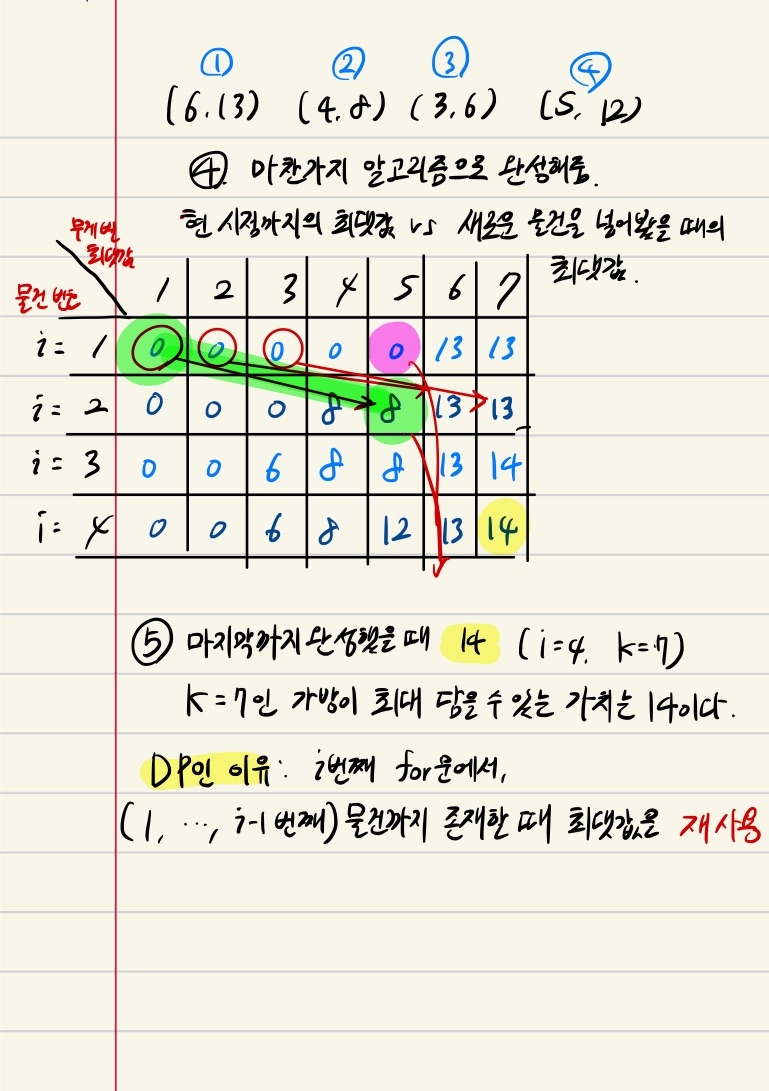 ① ② ③ ④
(6, 13) (4, 8) (3, 6) (5, 12)
④. 마찬가지 알고리즘으로 완성해줌.
현 시점까지의 최댓값 vs 새로운 물건을 넣어봤을 때의
최댓값.
무게별
최댓값
물건 번호
1 2 3 4 5 6 7
i = 1 0 0 0 0 0 13 13
i = 2 0 0 0 8 8 13 13
i = 3 0 0 6 8 8 13 14
i = 4 0 0 6 8 12 13 14
⑤ 마지막까지 완성했을 때 14 (i=4, k=7)
K = 7인 가방이 최대 담을 수 있는 가치는 14이다.
DP인 이유: i번째 for문에서,
(1, ..., i-1 번째) 물건까지 존재할 때 최댓값을 재사용